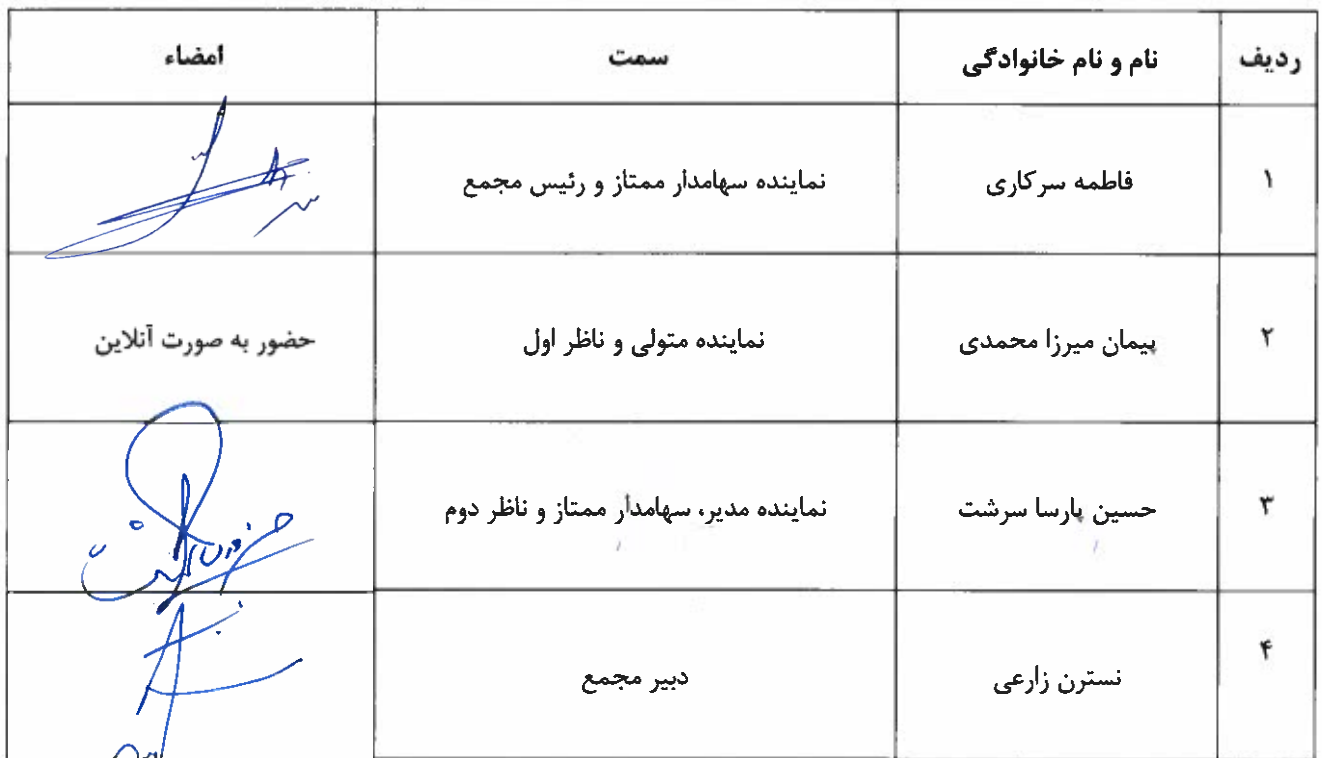 ردیف نام و نام خانوادگی سمت امضاء
۱ فاطمه سرکاری نماینده سهامدار ممتاز و رئیس مجمع
۲ پیمان میرزا محمدی نماینده متولی و ناظر اول حضور به صورت آنلاین
۳ حسین پارسا سرشت نماینده مدیر، سهامدار ممتاز و ناظر دوم
۴ نسترن زارعی دبیر مجمع